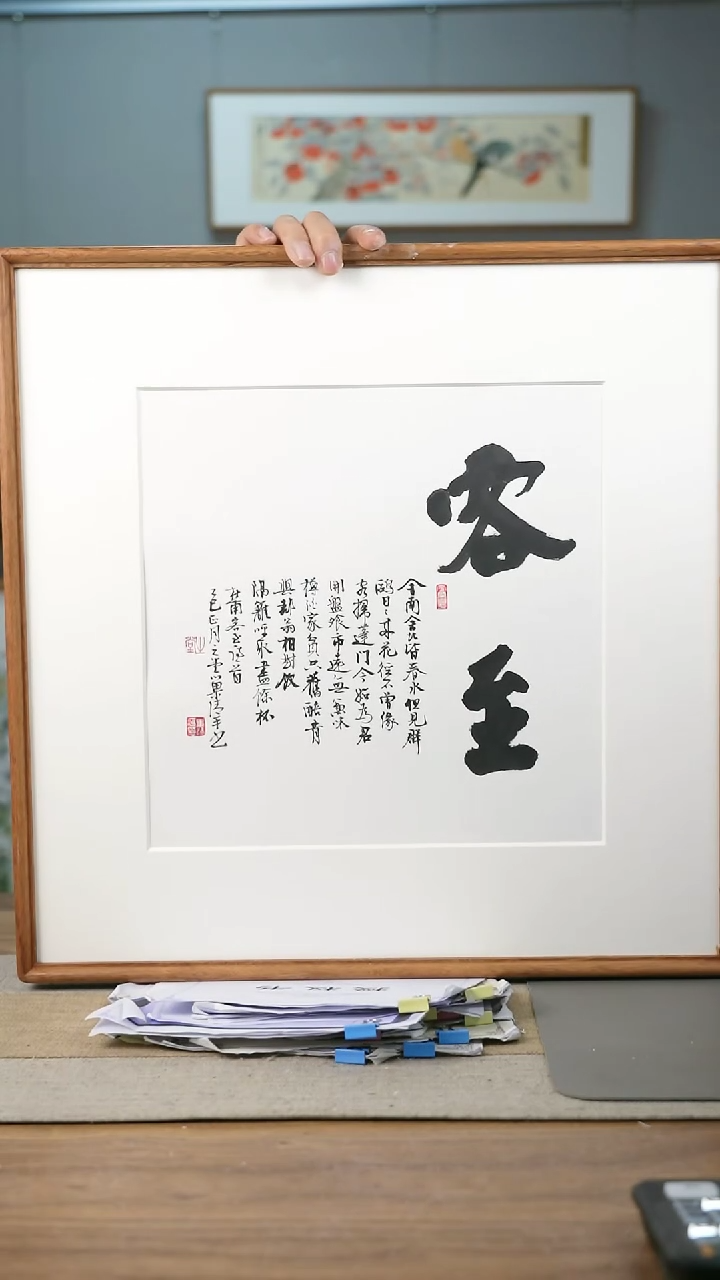 客至
舍南舍北皆春水但見群
鷗日〻來花徑不曾緣
客掃蓬門今始為君
開盤飧市遠無兼味
樽酒家貧只舊醅肯
與鄰翁相對飲
隔籬呼取盡餘杯
杜甫客至詩首
乙巳正月之